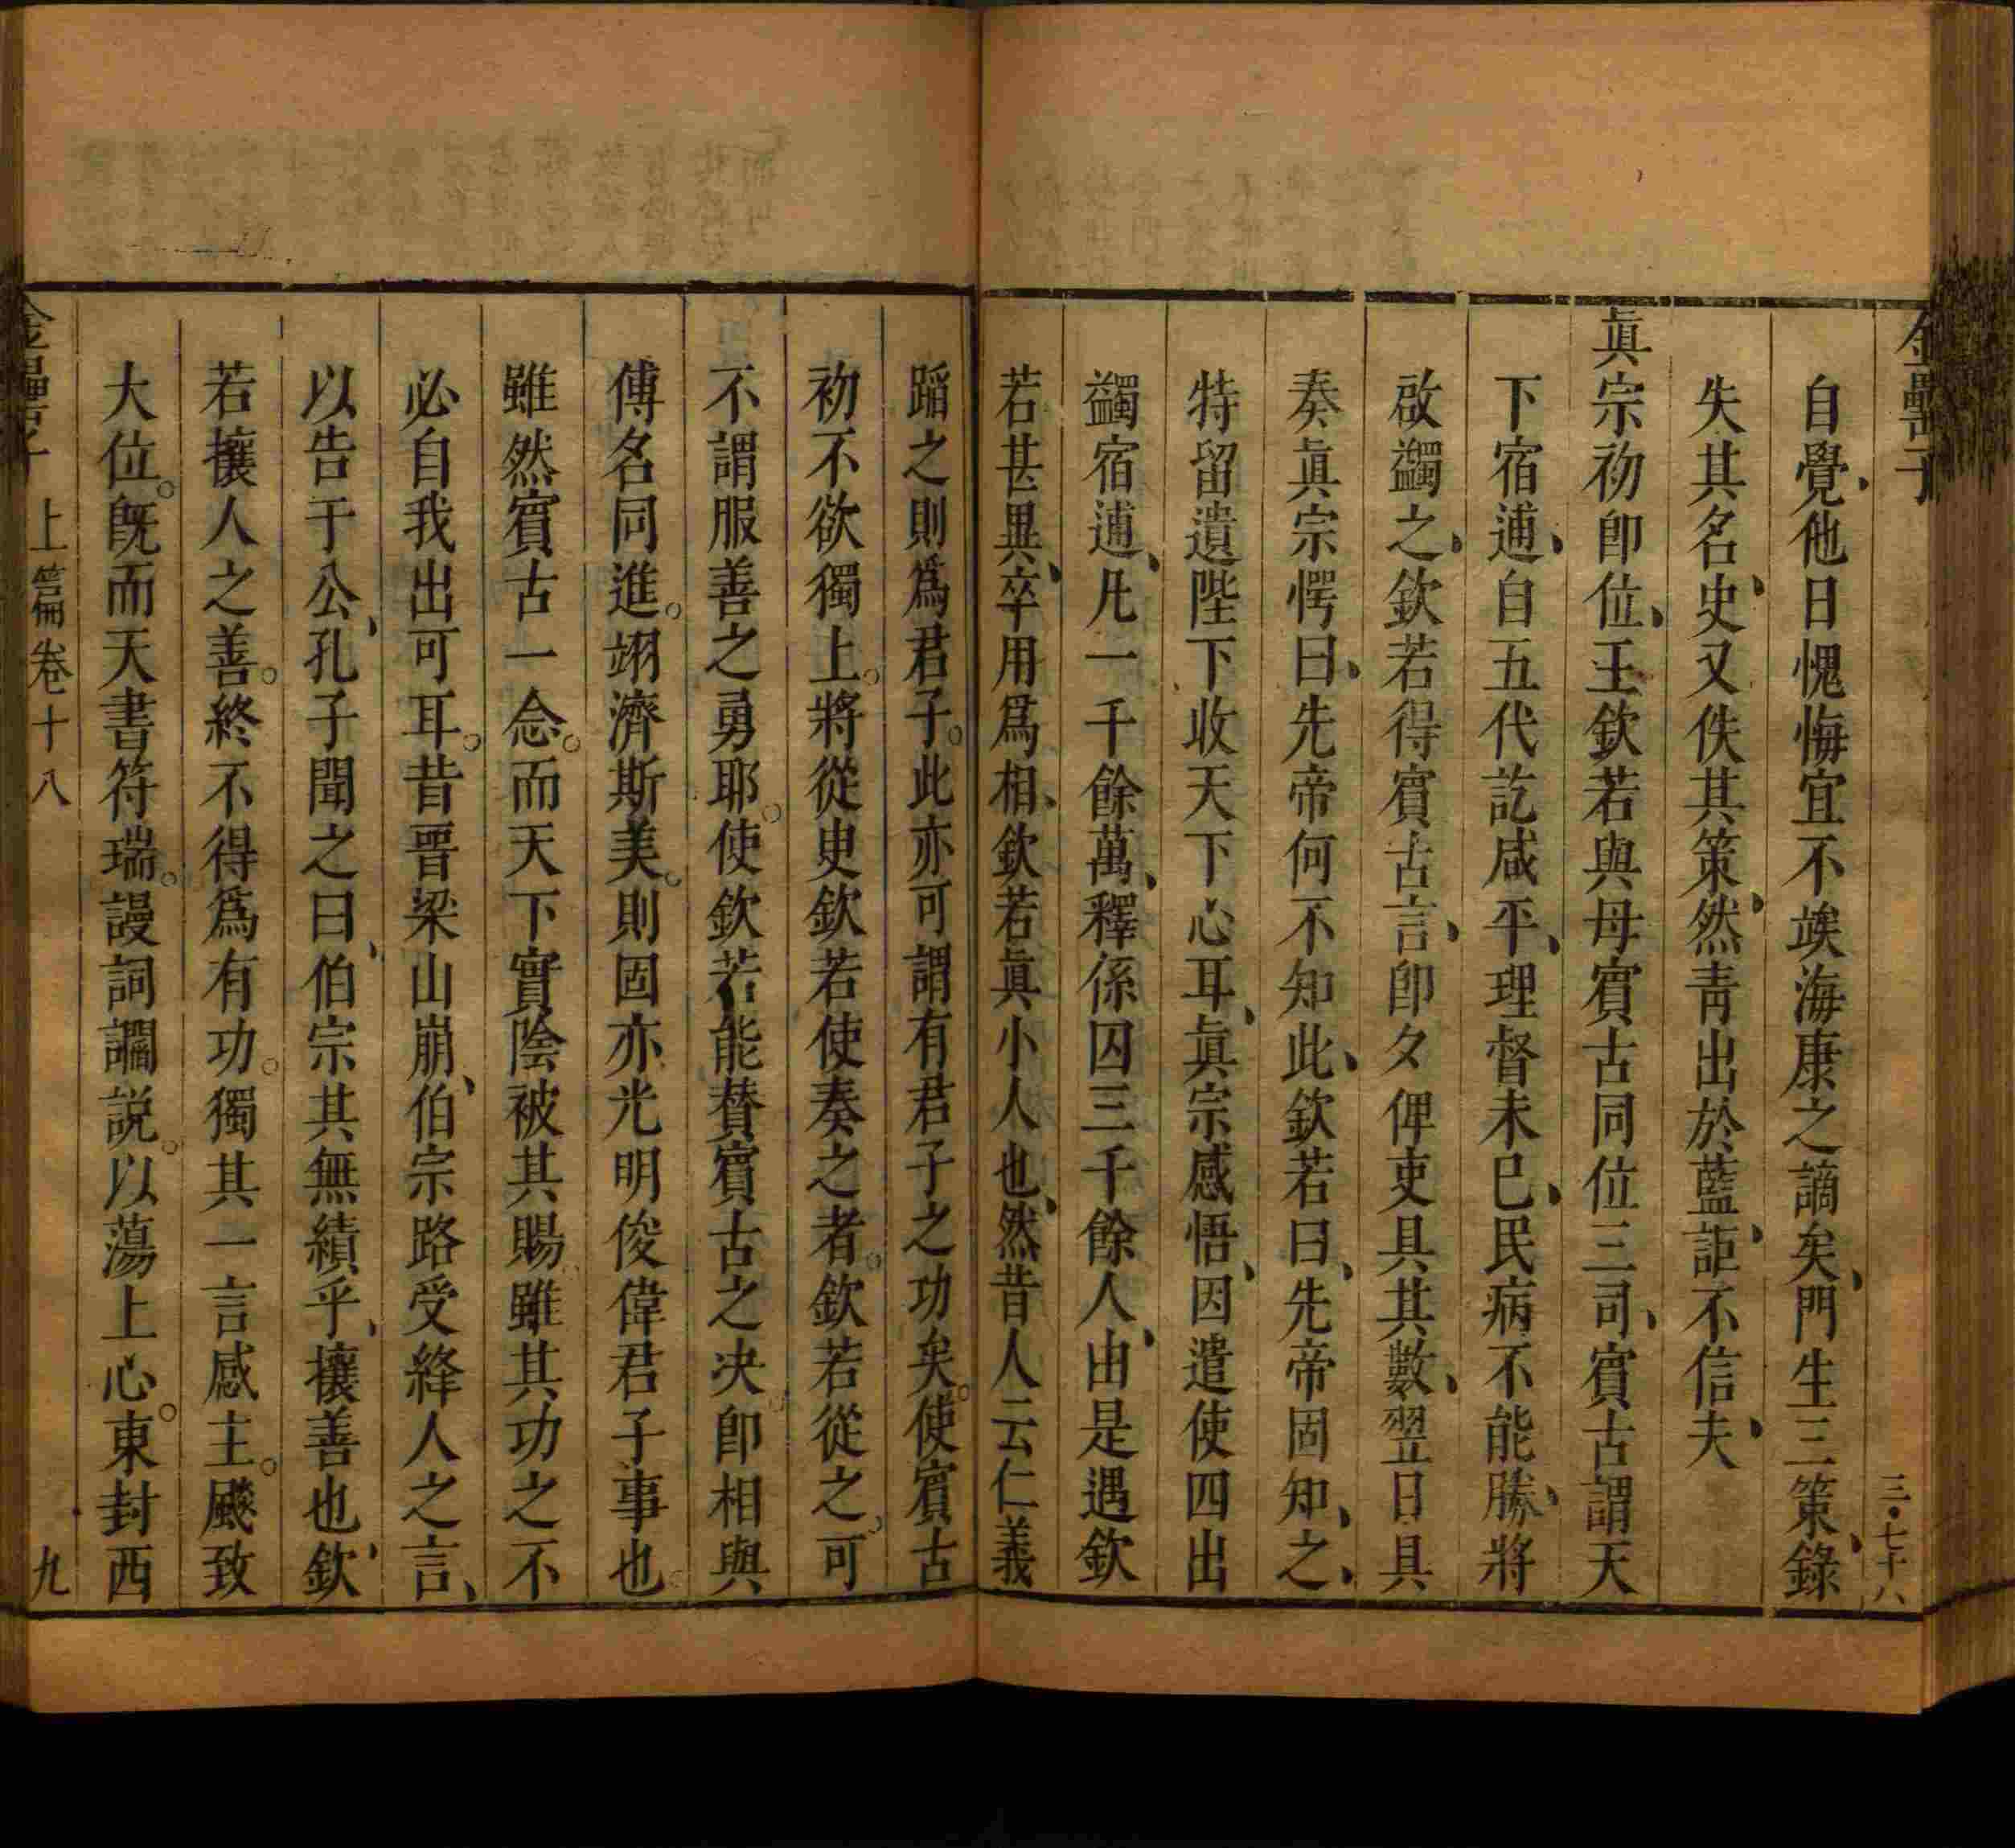 金罍子
三·七十八
自覺他日愧悔宜不竢海康之謫矣門生三策錄
失其名史又佚其策然青出於藍詎不信夫
眞宗初卽位王欽若與母賔古同位三司賔古謂天
下宿逋自五代訖咸平理督未已民病不能勝將
啟蠲之欽若得賔古言卽夕俾吏具其數翌日具
奏眞宗愕曰先帝何不知此欽若曰先帝固知之
特留遺陛下收天下心耳眞宗感悟因遣使四出
蠲宿逋凡一千餘萬釋係囚三千餘人由是遇欽
若甚異卒用爲相欽若眞小人也然昔人云仁義
蹈之則爲君子此亦可謂有君子之功矣使賔古
初不欲獨上將從臾欽若使奏之者欽若從之可
不謂服善之勇耶使欽若能賛賔古之决卽相與
傅名同進翊濟斯美則固亦光明俊偉君子事也
雖然賔古一念而天下實陰被其賜雖其功之不
必自我出可耳昔晋梁山崩伯宗路受絳人之言
以告于公孔子聞之曰伯宗其無績乎攘善也欽
若攘人之善終不得爲有功獨其一言感主颷致
大位旣而天書符瑞謾詞讕説以蕩上心東封西
金罍子 上篇卷十八 九